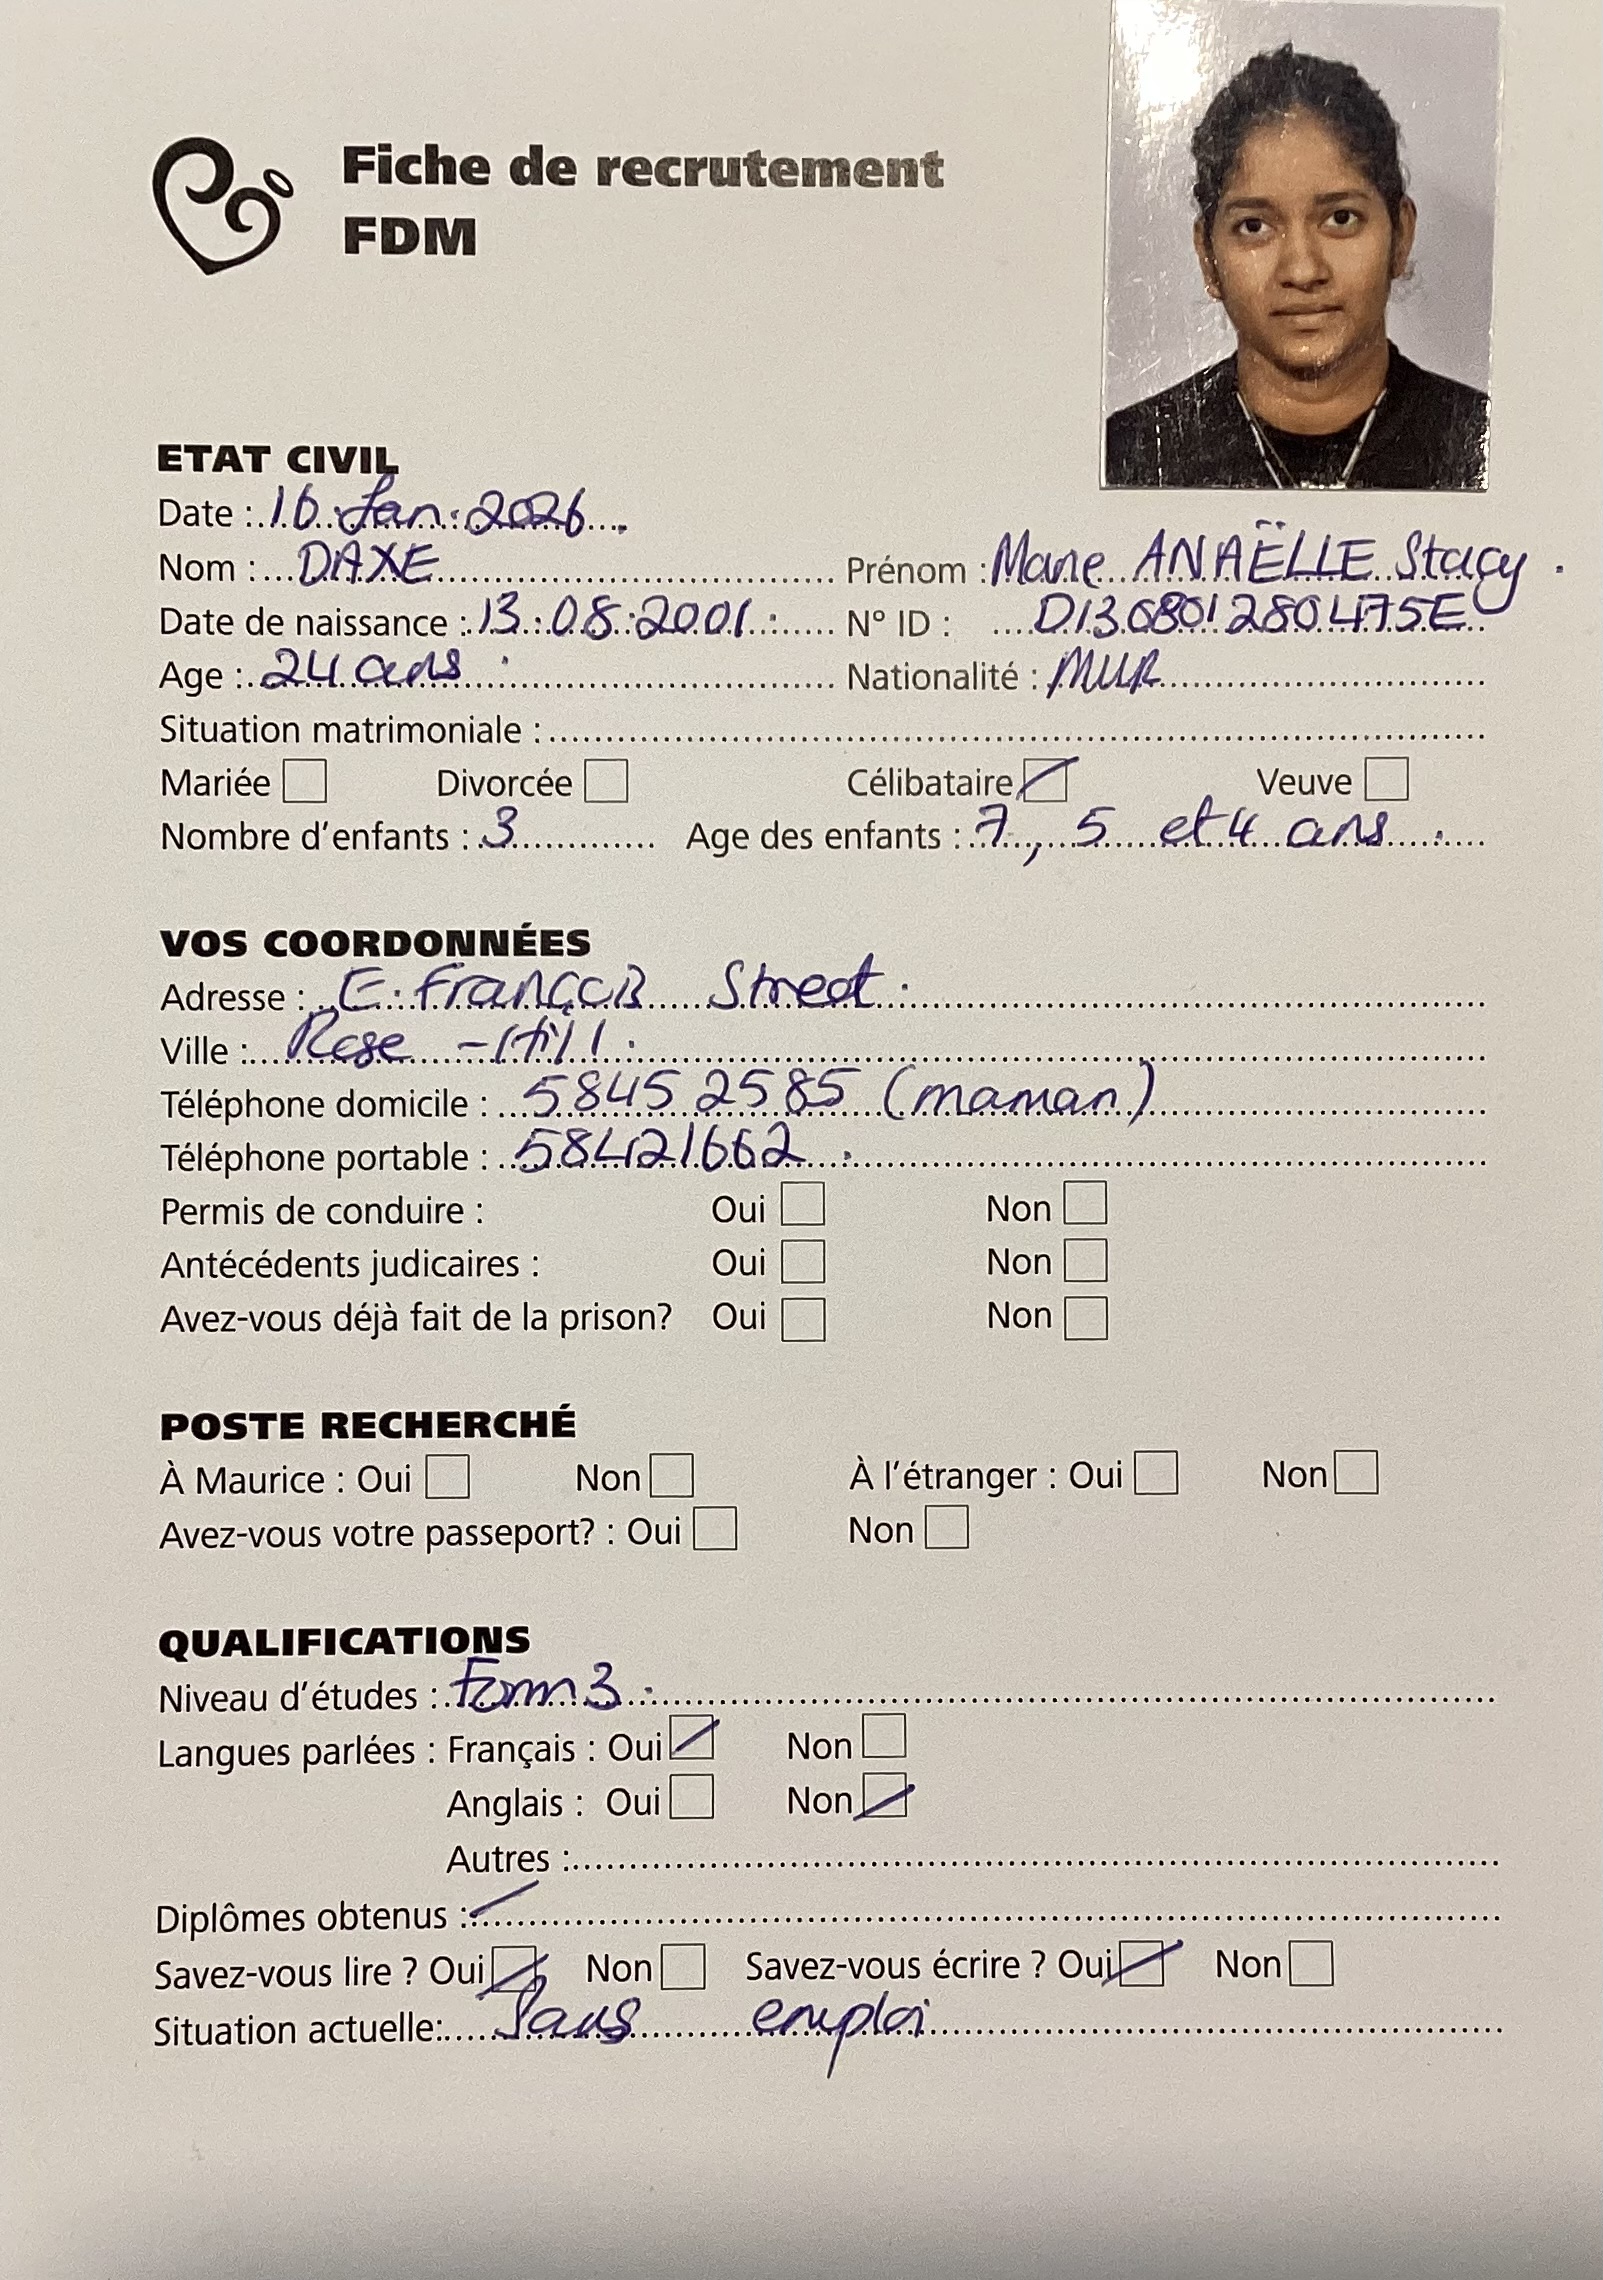 Fiche de recrutement
FDM
ETAT CIVIL
Date : 16 Jan 2026
Nom : DAXE Prénom : Marie ANAËLLE Stacy.
Date de naissance : 13.08.2001. N° ID : D1308012804175E
Age : 24 ans Nationalité : MUR
Situation matrimoniale :
Mariée Divorcée Célibataire Veuve
Nombre d'enfants : 3 Age des enfants : 7, 5 et 4 ans.
VOS COORDONNÉES
Adresse : E. François Street.
Ville : Rose-Hill.
Téléphone domicile : 5845 2585 (maman)
Téléphone portable : 58421662.
Permis de conduire : Oui Non
Antécédents judicaires : Oui Non
Avez-vous déjà fait de la prison? Oui Non
POSTE RECHERCHÉ
À Maurice : Oui Non À l'étranger : Oui Non
Avez-vous votre passeport? : Oui Non
QUALIFICATIONS
Niveau d'études : Form 3.
Langues parlées : Français : Oui Non
Anglais : Oui Non
Autres :
Diplômes obtenus :
Savez-vous lire ? Oui Non Savez-vous écrire ? Oui Non
Situation actuelle: Sans emploi